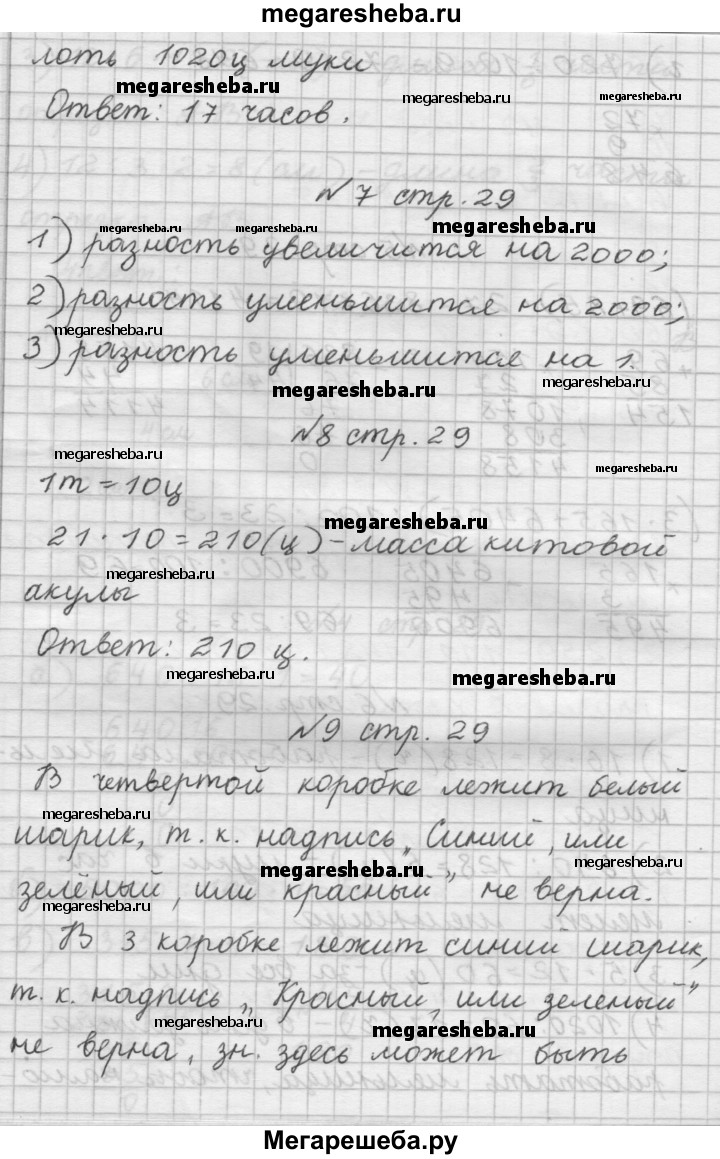 megaresheba.ru
лоть 1020ц муки
megaresheba.ru megaresheba.ru megaresheba.ru
Ответ: 17 часов.
№7 стр. 29
megaresheba.ru megaresheba.ru megaresheba.ru
1) разность увеличится на 2000;
2) разность уменьшится на 2000;
megaresheba.ru
3) разность уменьшится на 1.
megaresheba.ru megaresheba.ru
№8 стр. 29
megaresheba.ru megaresheba.ru
1т = 10ц
megaresheba.ru
21 · 10 = 210(ц) - масса китовой
megaresheba.ru
акулы
Ответ: 210 ц.
megaresheba.ru megaresheba.ru
№9 стр. 29
В четвертой коробке лежит белый
megaresheba.ru
шарик, т. к. надпись „Синий, или
megaresheba.ru megaresheba.ru
зелёный, или красный" не верна.
megaresheba.ru
В 3 коробке лежит синий шарик,
т. к. надпись „Красный, или зеленый"
megaresheba.ru megaresheba.ru
не верна, зн. здесь может быть
Мегарешеба.ру